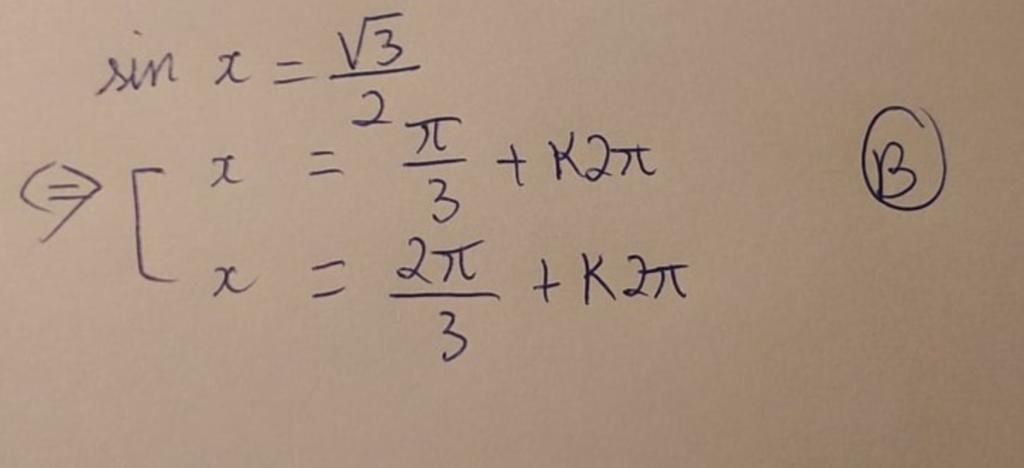 sin x = √3/2
⇔ [ x = π/3 + K2π
x = 2π/3 + K2π
B